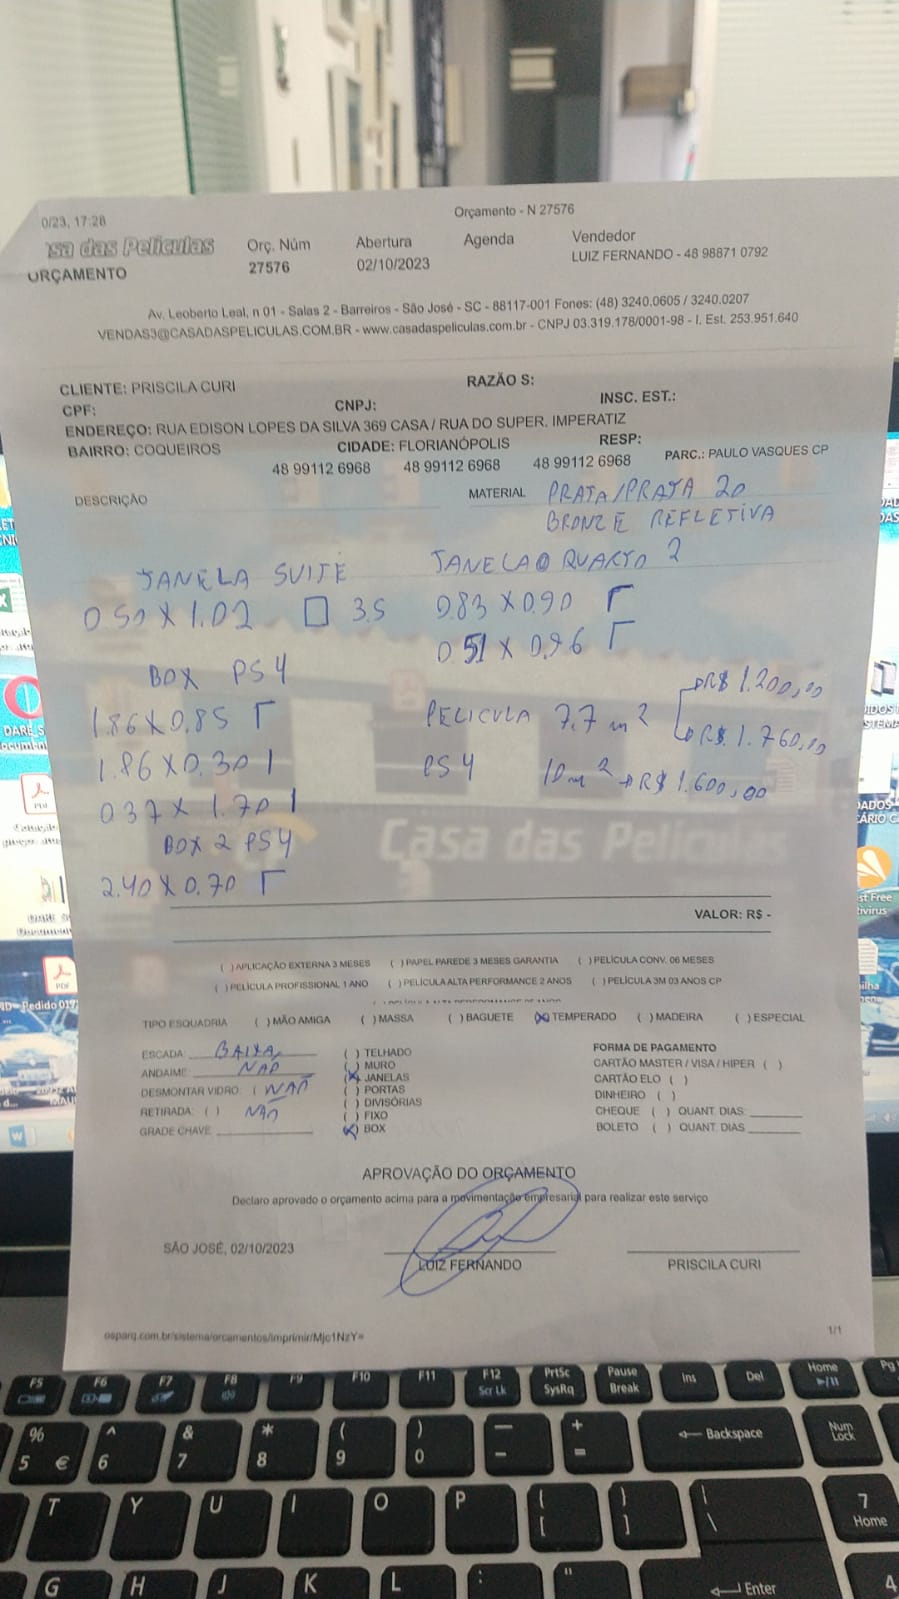 0/23, 17:28
Orçamento - N 27576
sa das Películas
ORÇAMENTO
Orç. Núm
27576
Abertura
02/10/2023
Agenda
Vendedor
LUIZ FERNANDO - 48 98871 0792
Av. Leoberto Leal, n 01 - Salas 2 - Barreiros - São José - SC - 88117-001 Fones: (48) 3240.0605 / 3240.0207
VENDAS3@CASADASPELICULAS.COM.BR - www.casadaspeliculas.com.br - CNPJ 03.319.178/0001-98 - I. Est. 253.951.640
CLIENTE: PRISCILA CURI RAZÃO S:
CPF: CNPJ: INSC. EST.:
ENDEREÇO: RUA EDISON LOPES DA SILVA 369 CASA / RUA DO SUPER. IMPERATIZ
BAIRRO: COQUEIROS CIDADE: FLORIANÓPOLIS RESP:
48 99112 6968 48 99112 6968 48 99112 6968 PARC.: PAULO VASQUES CP
DESCRIÇÃO MATERIAL PRATA/PRATA 20
BRONZE REFLETIVA
JANELA SUITE
0.50 X 1.02 3.5
BOX PS4
1.86 X 0.85
1.86 X 0.30
0.37 X 1.70
BOX 2 PS4
2.40 X 0.70
JANELAO QUARTO 2
0.83 X 0.90
0.51 X 0.96
PELICULA 7.7 m² R$ 1.200,00
R$ 1.760,00
PS4 10 m² R$ 1.600,00
Casa das Películas
VALOR: R$ -
( ) APLICAÇÃO EXTERNA 3 MESES ( ) PAPEL PAREDE 3 MESES GARANTIA ( ) PELÍCULA CONV. 06 MESES
( ) PELÍCULA PROFISSIONAL 1 ANO ( ) PELÍCULA ALTA PERFORMANCE 2 ANOS ( ) PELÍCULA 3M 03 ANOS CP
TIPO ESQUADRIA ( ) MÃO AMIGA ( ) MASSA ( ) BAGUETE (X) TEMPERADO ( ) MADEIRA ( ) ESPECIAL
ESCADA: BAIXA
ANDAIME: NAO
DESMONTAR VIDRO: ( NAO
RETIRADA: ( ) NAO
GRADE CHAVE
( ) TELHADO
( ) MURO
(X) JANELAS
( ) PORTAS
( ) DIVISÓRIAS
( ) FIXO
(X) BOX
FORMA DE PAGAMENTO
CARTÃO MASTER / VISA / HIPER ( )
CARTÃO ELO ( )
DINHEIRO ( )
CHEQUE ( ) QUANT. DIAS:
BOLETO ( ) QUANT. DIAS
APROVAÇÃO DO ORÇAMENTO
Declaro aprovado o orçamento acima para a movimentação empresarial para realizar este serviço
SÃO JOSÉ, 02/10/2023
LUIZ FERNANDO
PRISCILA CURI
osparq.com.br/sistema/orcamentos/imprimir/Mjc1NzY=
1/1
F5 F6 F7 F8 F9 F10 F11 F12 Scr Lk PrtSc SysRq Pause Break Ins Del Home Pg
% 5 € ^ 6 & 7 * 8 ( 9 ) 0 — - + = Backspace Num Lock
T Y U I O P { [ } ] | \ 7 Home
G H J K L : " Enter 4